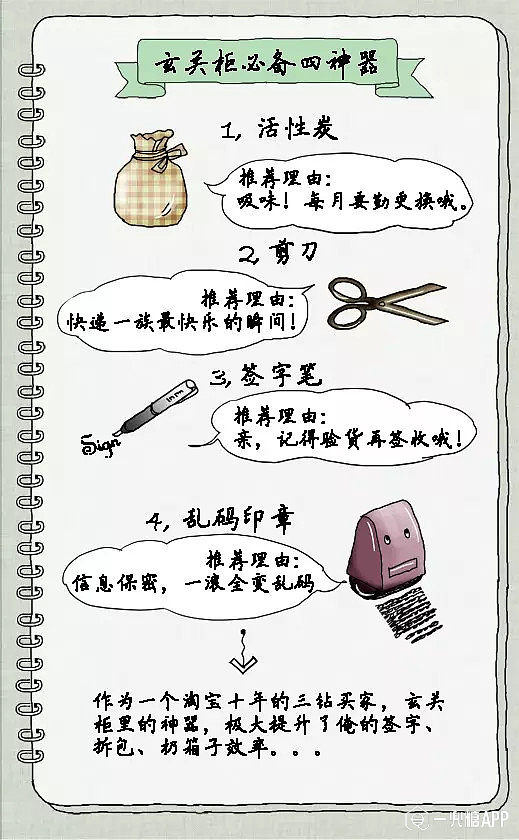 玄关柜必备四神器
1, 活性炭
推荐理由:
吸味! 每月要勤更换哦。
2, 剪刀
推荐理由:
快递一族最快乐的瞬间!
3, 签字笔
Sign
推荐理由:
亲, 记得验货再签收哦!
4, 乱码印章
推荐理由:
信息保密, 一滚全变乱码
作为一个淘宝十年的三钻买家, 玄关
柜里的神器, 极大提升了俺的签字、
拆包、扔箱子效率。。。
一兜糖APP